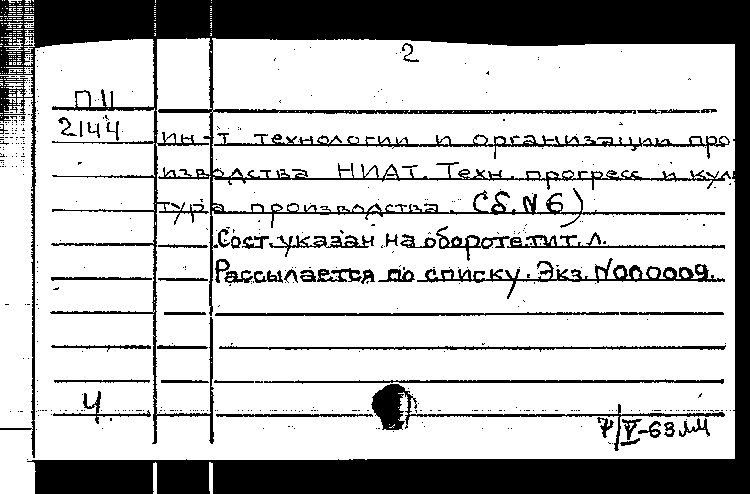 2
П11
2144
ин-т технологии и организации про-
изводства НИАТ. Техн. прогресс и куль
тура производства. (Сб. N 6)
Сост. указан на обороте тит. л.
Рассылается по списку. Экз. N000009.
Ч.
7/V-63 лм